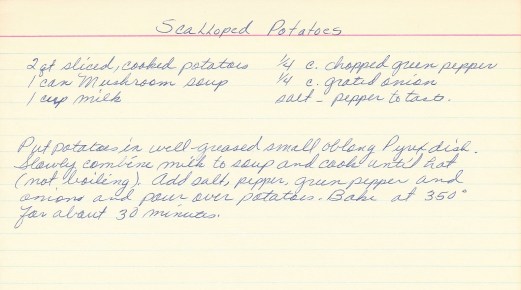 Scalloped Potatoes
2 qt sliced, cooked potatoes
1 can Mushroom soup
1 cup milk
1/4 c. chopped green pepper
1/4 c. grated onion
salt - pepper to taste.
Put potatoes in well-greased small oblong Pyrex dish.
Slowly combine milk to soup and cook until hot
(not boiling). Add salt, pepper, green pepper and
onions and pour over potatoes. Bake at 350°
for about 30 minutes.